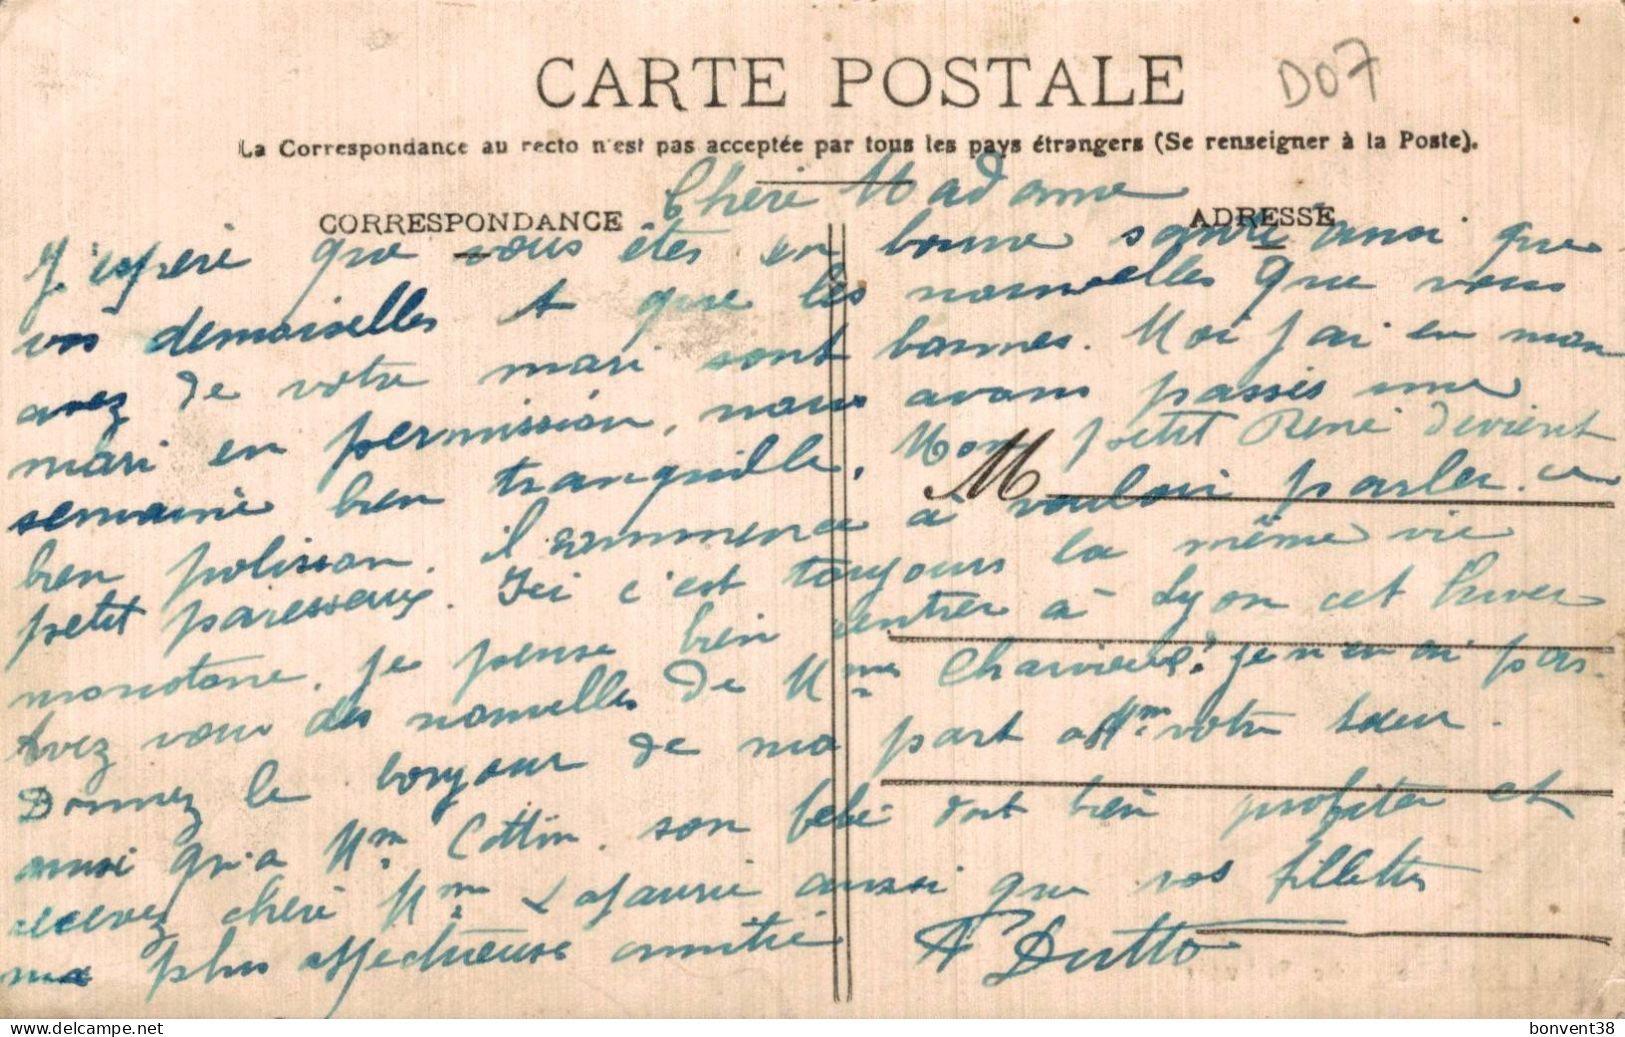 CARTE POSTALE
D07
La Correspondance au recto n'est pas acceptée par tous les pays étrangers (Se renseigner à la Poste).
CORRESPONDANCE
ADRESSE
M
Chère Madame
J'espère que vous êtes en bonne santé ainsi que
vos demoiselles et que les nouvelles que vous
avez de votre mari sont bonnes. Moi j'ai eu mon
mari en permission, nous avons passés une
semaine bien tranquille. Mon petit René devient
bien polisson. il commence à vouloir parler. ce
petit paresseux. Ici c'est toujours la même vie
monotone. je pense bien rentrer à Lyon cet hiver
Avez vous des nouvelles de Mme je n'en ai pas.
Donnez le bonjour de ma part a Mme votre sœur.
ainsi qu'a Mme Cottin. son bébé doit bien profiter et
recevez chère Mme Lafaurie ainsi que vos fillettes
ma plus affectueuse amitié
Dutto
bonvent38